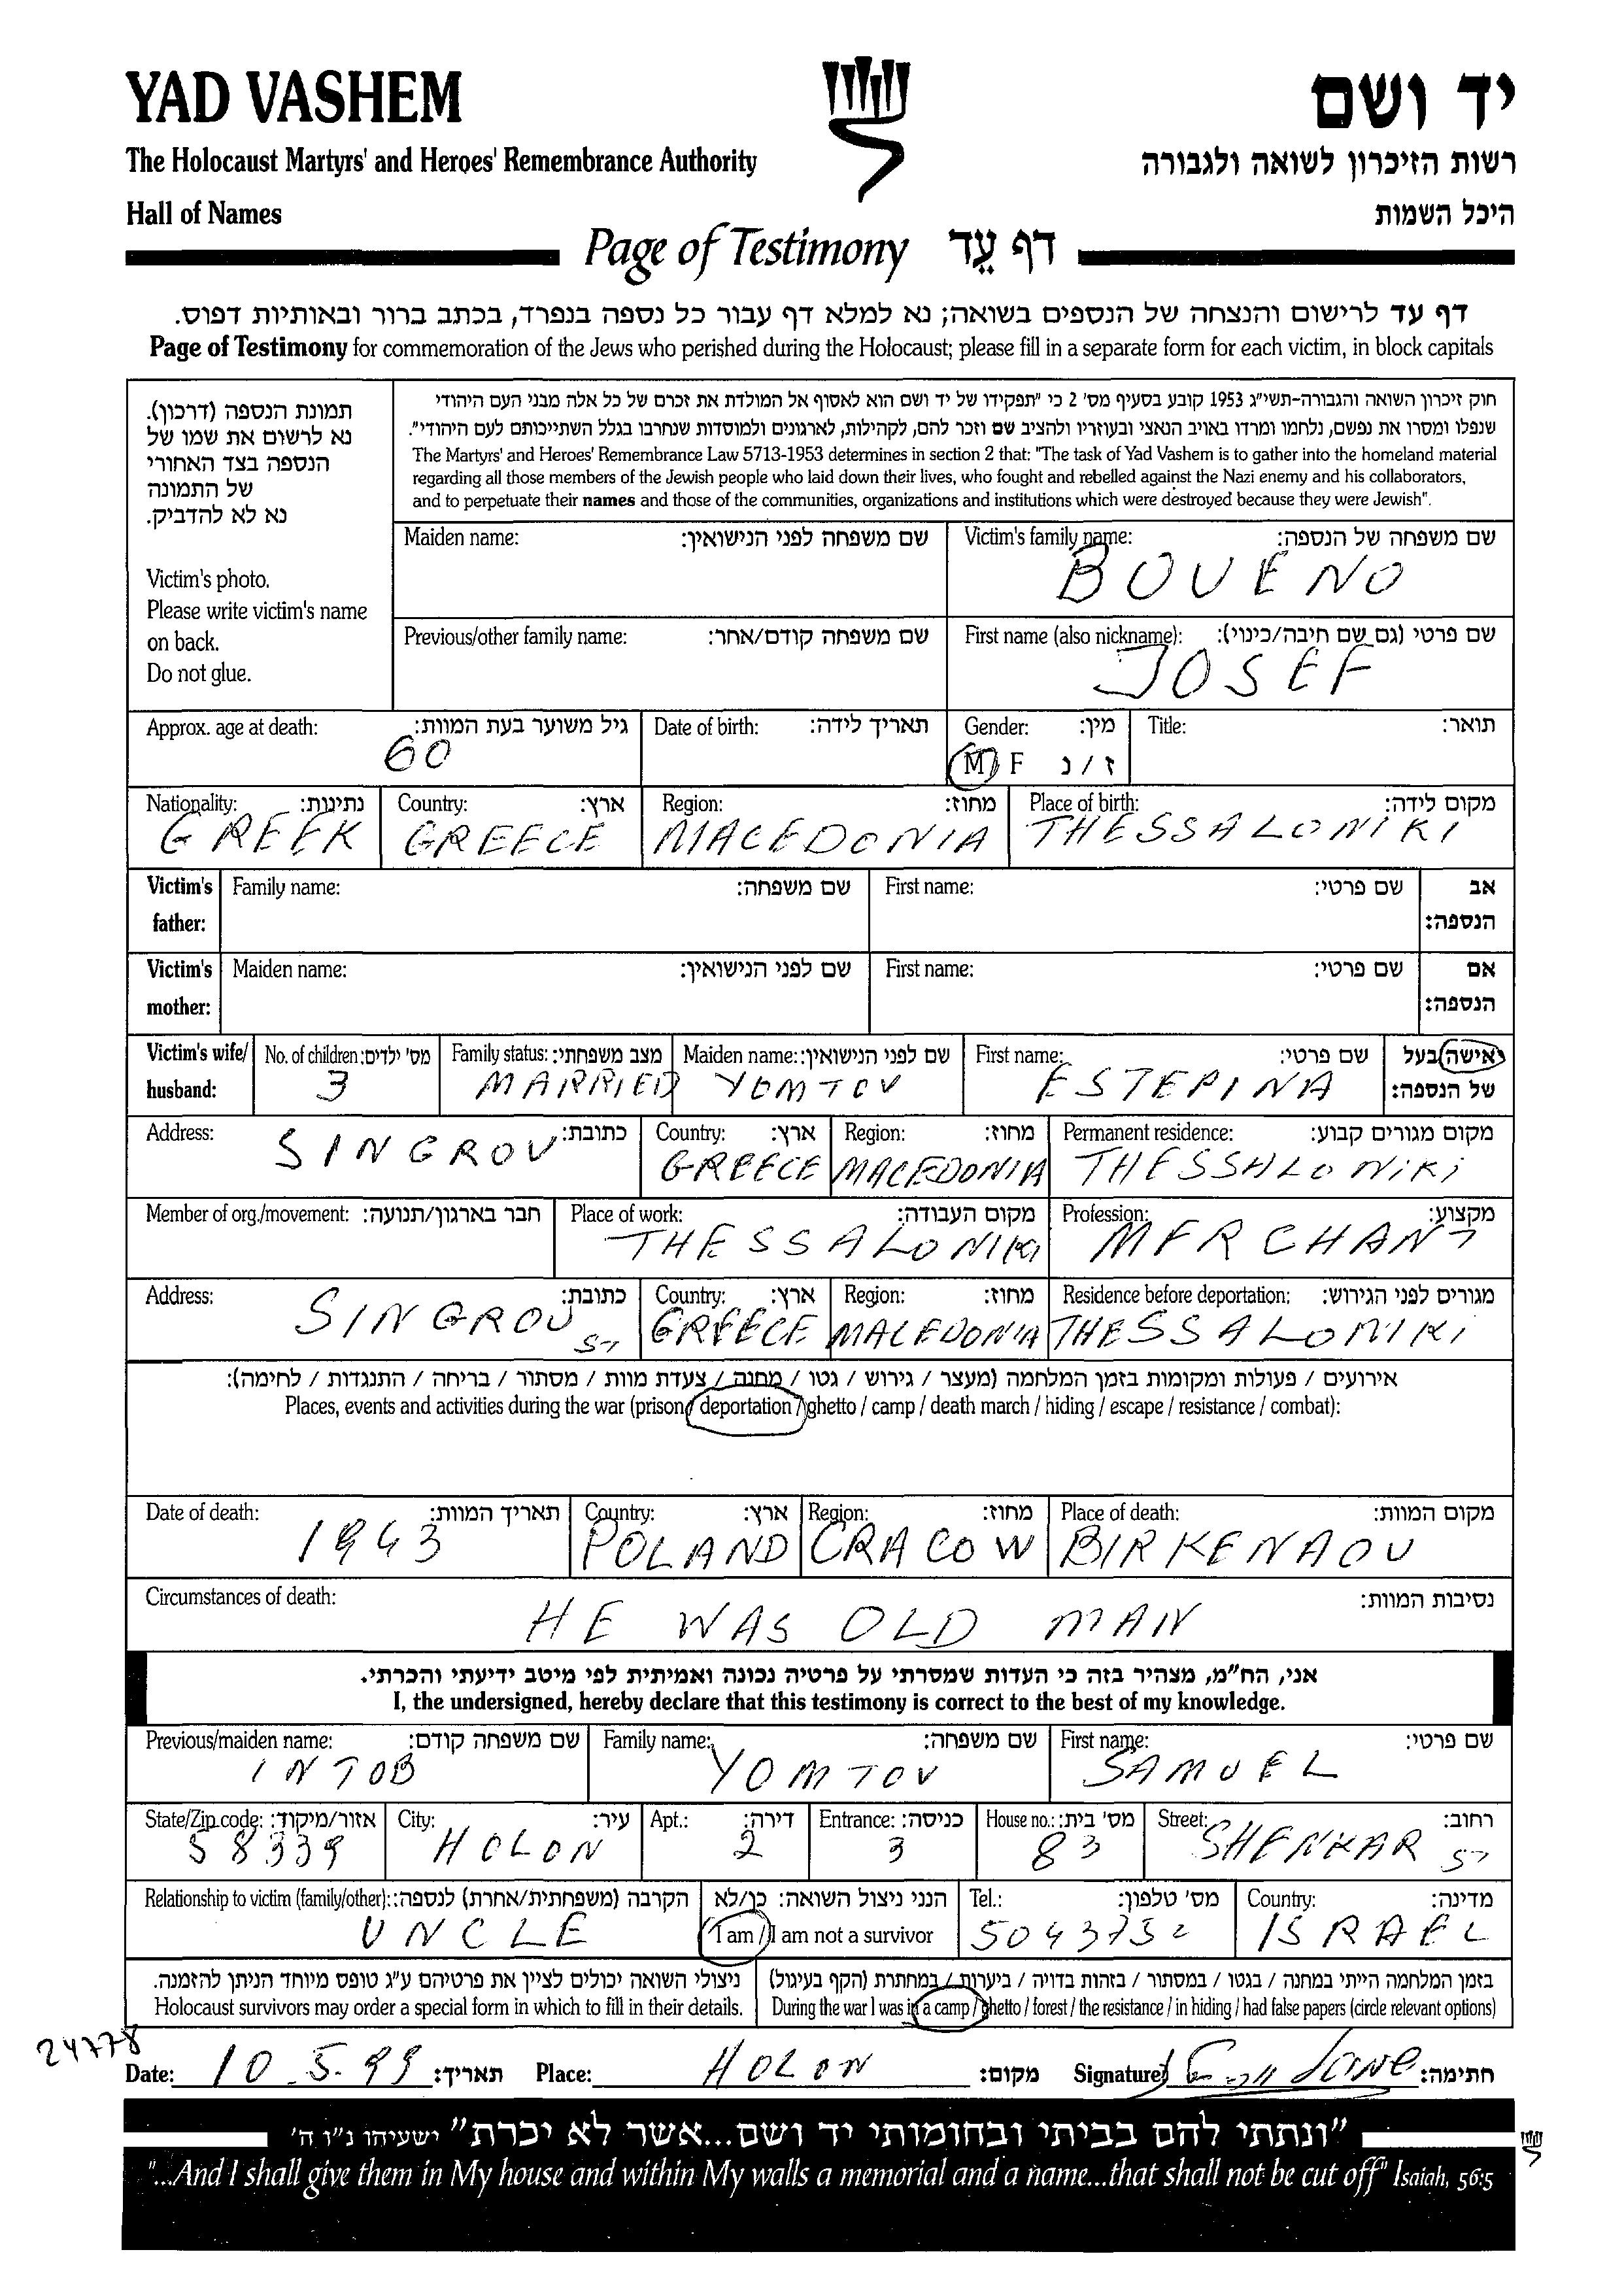 YAD VASHEM
יד ושם
The Holocaust Martyrs' and Heroes' Remembrance Authority
רשות הזיכרון לשואה ולגבורה
Hall of Names
היכל השמות
Page of Testimony דף עֵד
דף עד לרישום והנצחה של הנספים בשואה; נא למלא דף עבור כל נספה בנפרד, בכתב ברור ובאותיות דפוס.
Page of Testimony for commemoration of the Jews who perished during the Holocaust; please fill in a separate form for each victim, in block capitals
תמונת הנספה (דרכון).
נא לרשום את שמו של
הנספה בצד האחורי
של התמונה
נא לא להדביק.
Victim's photo.
Please write victim's name
on back.
Do not glue.
חוק זיכרון השואה והגבורה-תשי"ג 1953 קובע בסעיף מס' 2 כי "תפקידו של יד ושם הוא לאסוף אל המולדת את זכרם של כל אלה מבני העם היהודי
שנפלו ומסרו את נפשם, נלחמו ומרדו באויב הנאצי ובעוזריו ולהציב שם וזכר להם, לקהילות, לארגונים ולמוסדות שנחרבו בגלל השתייכותם לעם היהודי".
The Martyrs' and Heroes' Remembrance Law 5713-1953 determines in section 2 that: "The task of Yad Vashem is to gather into the homeland material
regarding all those members of the Jewish people who laid down their lives, who fought and rebelled against the Nazi enemy and his collaborators,
and to perpetuate their names and those of the communities, organizations and institutions which were destroyed because they were Jewish".
Maiden name: שם משפחה לפני הנישואין:
Victim's family name: שם משפחה של הנספה:
BOUENO
Previous/other family name: שם משפחה קודם/אחר:
First name (also nickname): שם פרטי (גם שם חיבה/כינוי):
JOSEF
Approx. age at death: גיל משוער בעת המוות:
60
Date of birth: תאריך לידה:
Gender: מין:
M F ז / נ
Title: תואר:
Nationality: נתינות:
GREEK
Country: ארץ:
GREECE
Region: מחוז:
MACEDONIA
Place of birth: מקום לידה:
THESSALONIKI
Victim's father: Family name: שם משפחה: First name: שם פרטי: אב הנספה:
Victim's mother: Maiden name: שם לפני הנישואין: First name: שם פרטי: אם הנספה:
Victim's wife/ husband:
No. of children: מס' ילדים:
3
Family status: מצב משפחתי:
MARRIED
Maiden name: שם לפני הנישואין:
YOMTOV
First name: שם פרטי:
ESTERINA
אישה/בעל של הנספה:
Address: כתובת:
SINGROU
Country: ארץ:
GREECE
Region: מחוז:
MACEDONIA
Permanent residence: מקום מגורים קבוע:
THESSALONIKI
Member of org./movement: חבר בארגון/תנועה:
Place of work: מקום העבודה:
THESSALONIKI
Profession: מקצוע:
MERCHANT
Address: כתובת:
SINGROU ST
Country: ארץ:
GREECE
Region: מחוז:
MACEDONIA
Residence before deportation: מגורים לפני הגירוש:
THESSALONIKI
אירועים / פעולות ומקומות בזמן המלחמה (מעצר / גירוש / גטו / מחנה / צעדת מוות / מסתור / בריחה / התנגדות / לחימה):
Places, events and activities during the war (prison / deportation / ghetto / camp / death march / hiding / escape / resistance / combat):
Date of death: תאריך המוות:
1943
Country: ארץ:
POLAND
Region: מחוז:
CRACOW
Place of death: מקום המוות:
BIRKENAOU
Circumstances of death: נסיבות המוות:
HE WAS OLD MAN
אני, הח"מ, מצהיר בזה כי העדות שמסרתי על פרטיה נכונה ואמיתית לפי מיטב ידיעתי והכרתי.
I, the undersigned, hereby declare that this testimony is correct to the best of my knowledge.
Previous/maiden name: שם משפחה קודם:
INTOB
Family name: שם משפחה:
YOMTOV
First name: שם פרטי:
SAMUEL
State/Zip code: אזור/מיקוד:
58339
City: עיר:
HOLON
Apt.: דירה:
2
Entrance: כניסה:
3
House no.: מס' בית:
83
Street: רחוב:
SHENKAR ST
Relationship to victim (family/other): הקרבה (משפחתית/אחרת) לנספה:
UNCLE
הנני ניצול השואה: כן/לא
I am / I am not a survivor
Tel.: מס' טלפון:
5043752
Country: מדינה:
ISRAEL
ניצולי השואה יכולים לציין את פרטיהם ע"ג טופס מיוחד הניתן להזמנה.
Holocaust survivors may order a special form in which to fill in their details.
בזמן המלחמה הייתי במחנה / בגטו / במסתור / בזהות בדויה / ביערות / במחתרת (הקף בעיגול)
During the war I was in a camp / ghetto / forest / the resistance / in hiding / had false papers (circle relevant options)
24778
Date: 10.5.99 תאריך: Place: HOLON מקום: Signature: חתימה:
"ונתתי להם בביתי ובחומותי יד ושם...אשר לא יכרת" ישעיהו נ"ו ה'
"...And I shall give them in My house and within My walls a memorial and a name...that shall not be cut off" Isaiah, 56:5